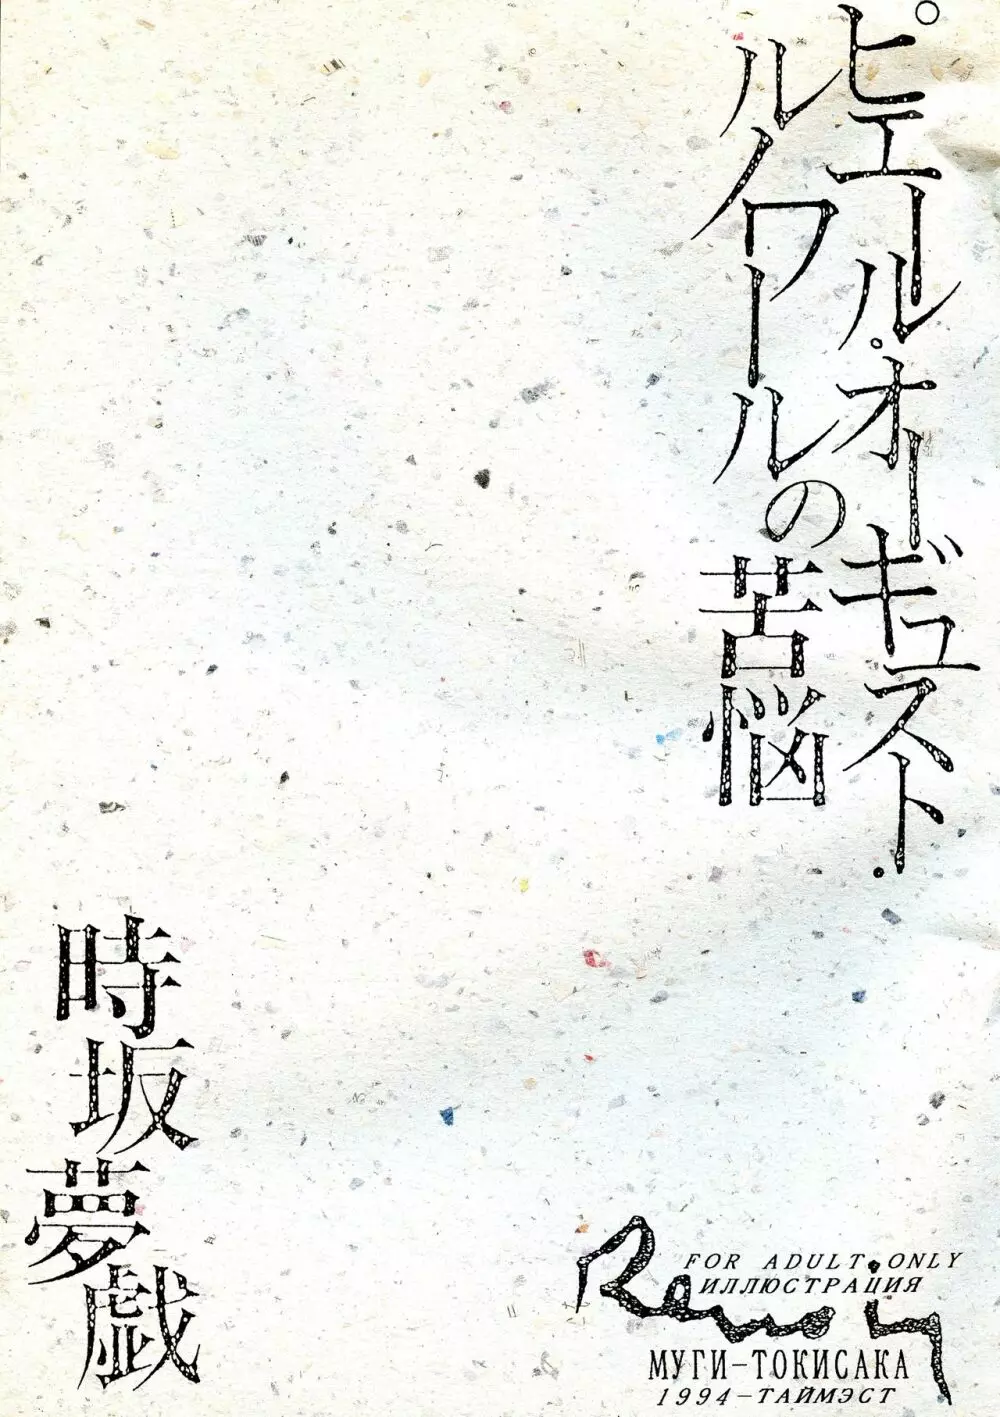 ピエール・オーギュスト・
ルノワールの苦悩
時坂夢戯
FOR ADULT ONLY
ИЛЛЮСТРАЦИЯ
Renoir
МУГИ-ТОКИСАКА
1994-ТАЙМЭСТ